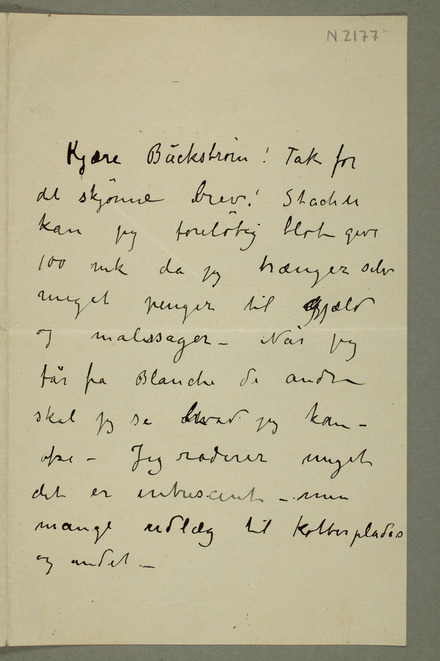 N 2177
Kjære Bäckström! Tak for
det skjønne brev! Stachu
kan jeg foreløbig blot give
100 mk da jeg trænger selv
meget penger til gjæld
og malesager – Når jeg
får fra Blanche de andre
skal jeg se hvad jeg kan –
også – Jeg raderer meget
det er intresant – men
mange udlæg til Kobberplader
og andet –